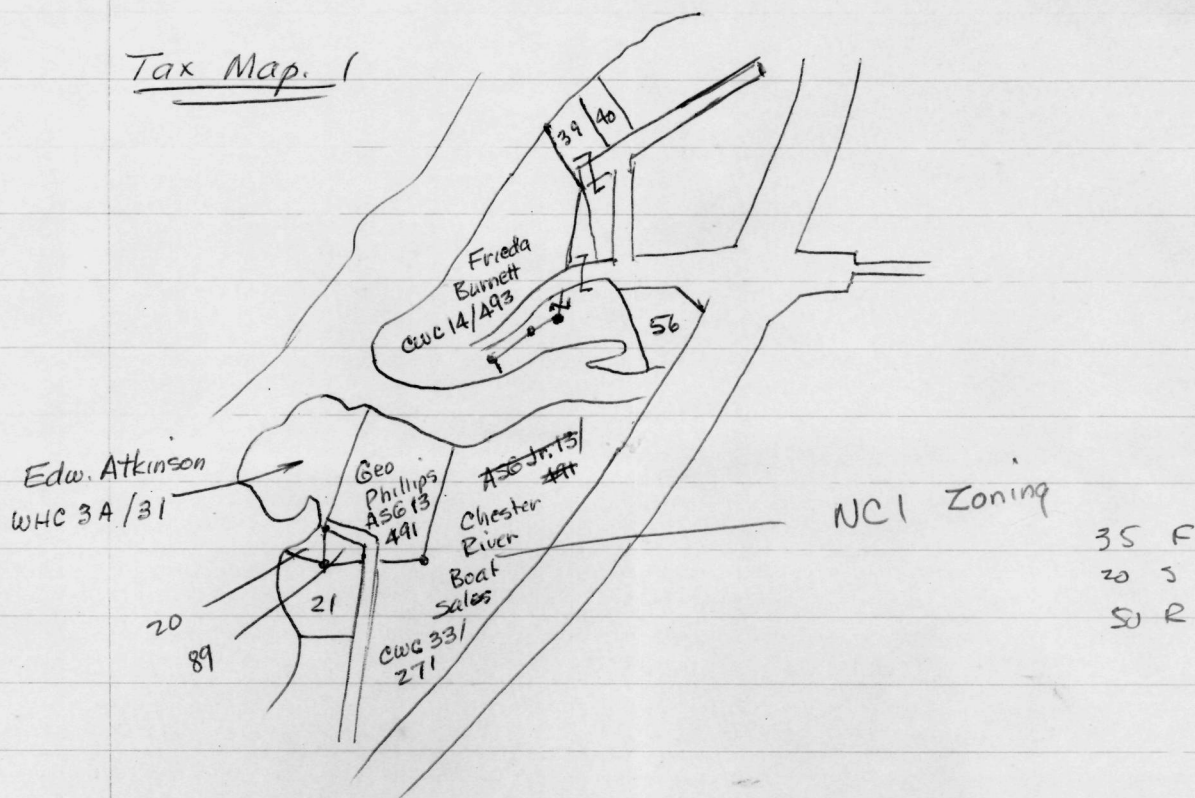 Tax Map. 1
39
40
Frieda
Burnett
CWC 14/493
56
Edw. Atkinson
WHC 3A/31
Geo
Phillips
ASG 13
491
ASG Jr. 13/
491
Chester
River
Boat
Sales
CWC 33/
271
NC1 Zoning
35 F
20 S
50 R
20
89
21